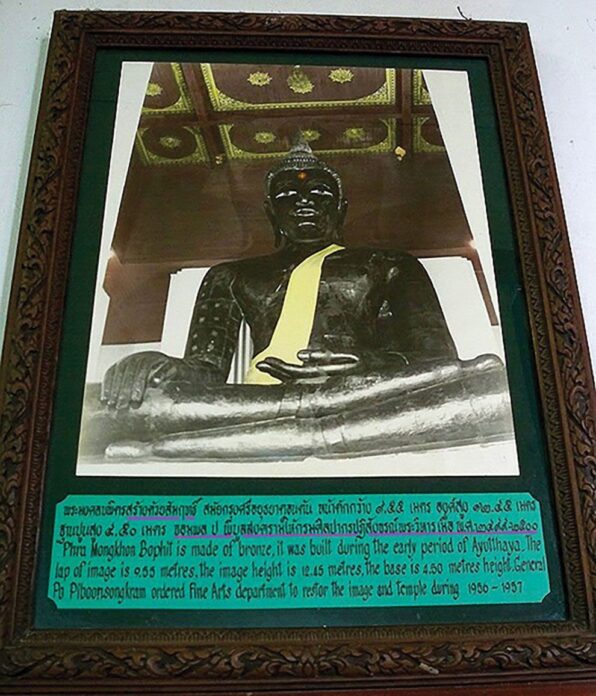 พระมงคลบพิตรสร้างด้วยสัมฤทธิ์ สมัยกรุงศรีอยุธยาตอนต้น หน้าตักกว้าง ๙.๕๕ เมตร องค์สูง ๑๒.๔๕ เมตร
ฐานปูนสูง ๔.๕๐ เมตร จอมพล ป พิบูลสงครามให้กรมศิลปากรปฏิสังขรณ์พระวิหาร เมื่อ พ.ศ.๒๔๙๙-๒๕๐๐
Phra Mongkhon Bophit is made of bronze, it was built during the early period of Ayutthaya. The
lap of image is 9.55 metres, the image height is 12.45 metres, the base is 4.50 metres height. General
Po Piboonsongkram ordered Fine Arts department to restor the image and temple during 1956 - 1957